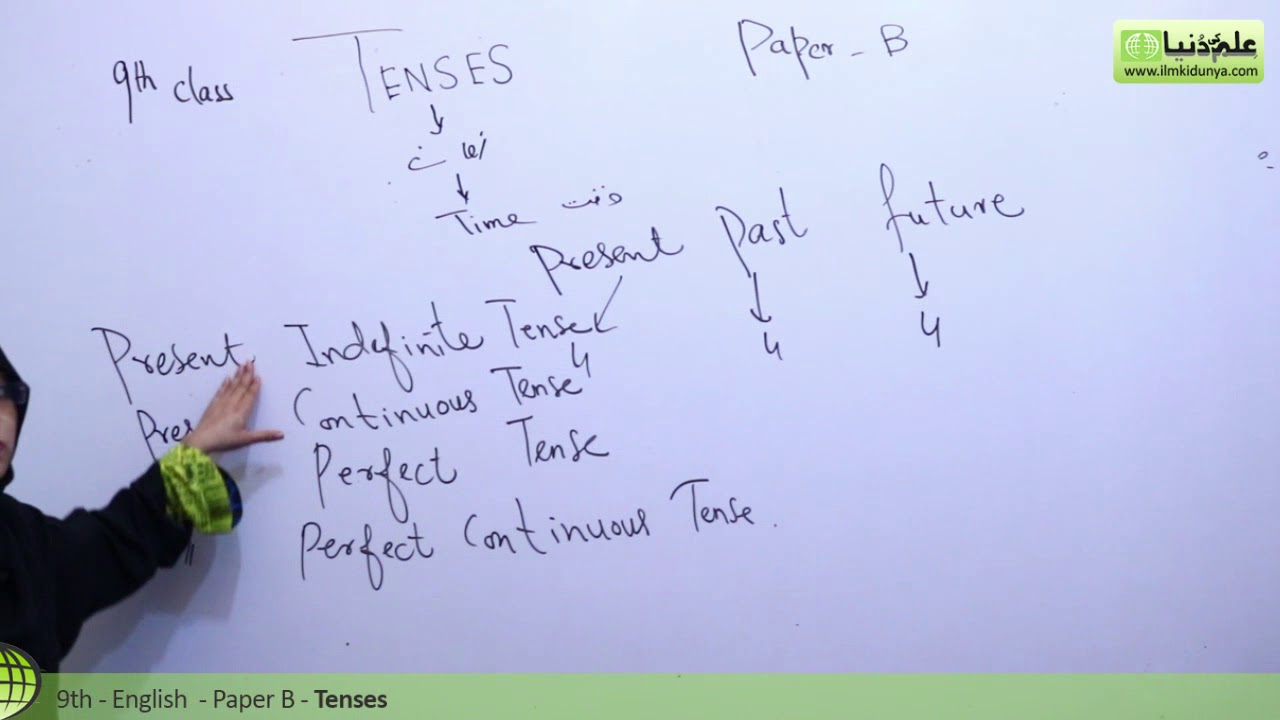 علم کی دنیا
www.ilmkidunya.com
9th class TENSES Paper - B
Time وقت
Present Past future
4 4 4
Present Indefinite Tense
Pres Continuous Tense
Perfect Tense
" Perfect Continuous Tense.
9th - English - Paper B - Tenses